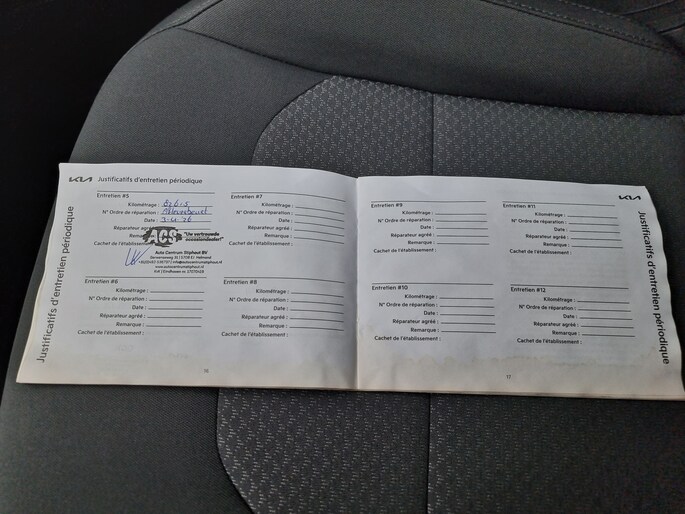 KIA Justificatifs d'entretien périodique
Justificatifs d'entretien périodique
Entretien #5
Kilométrage :
N° Ordre de réparation :
Date : 3-4-26
Réparateur agréé
Remar
Cachet de l'établissement
ACS "Uw vertrouwde
occasiondealer!"
Auto Centrum Stiphout BV
www.autocentrumstiphout.nl
Entretien #6
Kilométrage :
N° Ordre de réparation :
Date :
Réparateur agréé :
Remarque :
Cachet de l'établissement :
Entretien #7
Kilométrage :
N° Ordre de réparation :
Date :
Réparateur agréé :
Remarque :
Cachet de l'établissement :
Entretien #8
Kilométrage :
N° Ordre de réparation :
Date :
Réparateur agréé :
Remarque :
Cachet de l'établissement :
16
KIA
Entretien #9
Kilométrage :
N° Ordre de réparation :
Date :
Réparateur agréé :
Remarque :
Cachet de l'établissement :
Entretien #10
Kilométrage :
N° Ordre de réparation :
Date :
Réparateur agréé :
Remarque :
Cachet de l'établissement :
Entretien #11
Kilométrage :
N° Ordre de réparation :
Date :
Réparateur agréé :
Remarque :
Cachet de l'établissement :
Entretien #12
Kilométrage :
N° Ordre de réparation :
Date :
Réparateur agréé :
Remarque :
Cachet de l'établissement :
17
Justificatifs d'entretien périodique